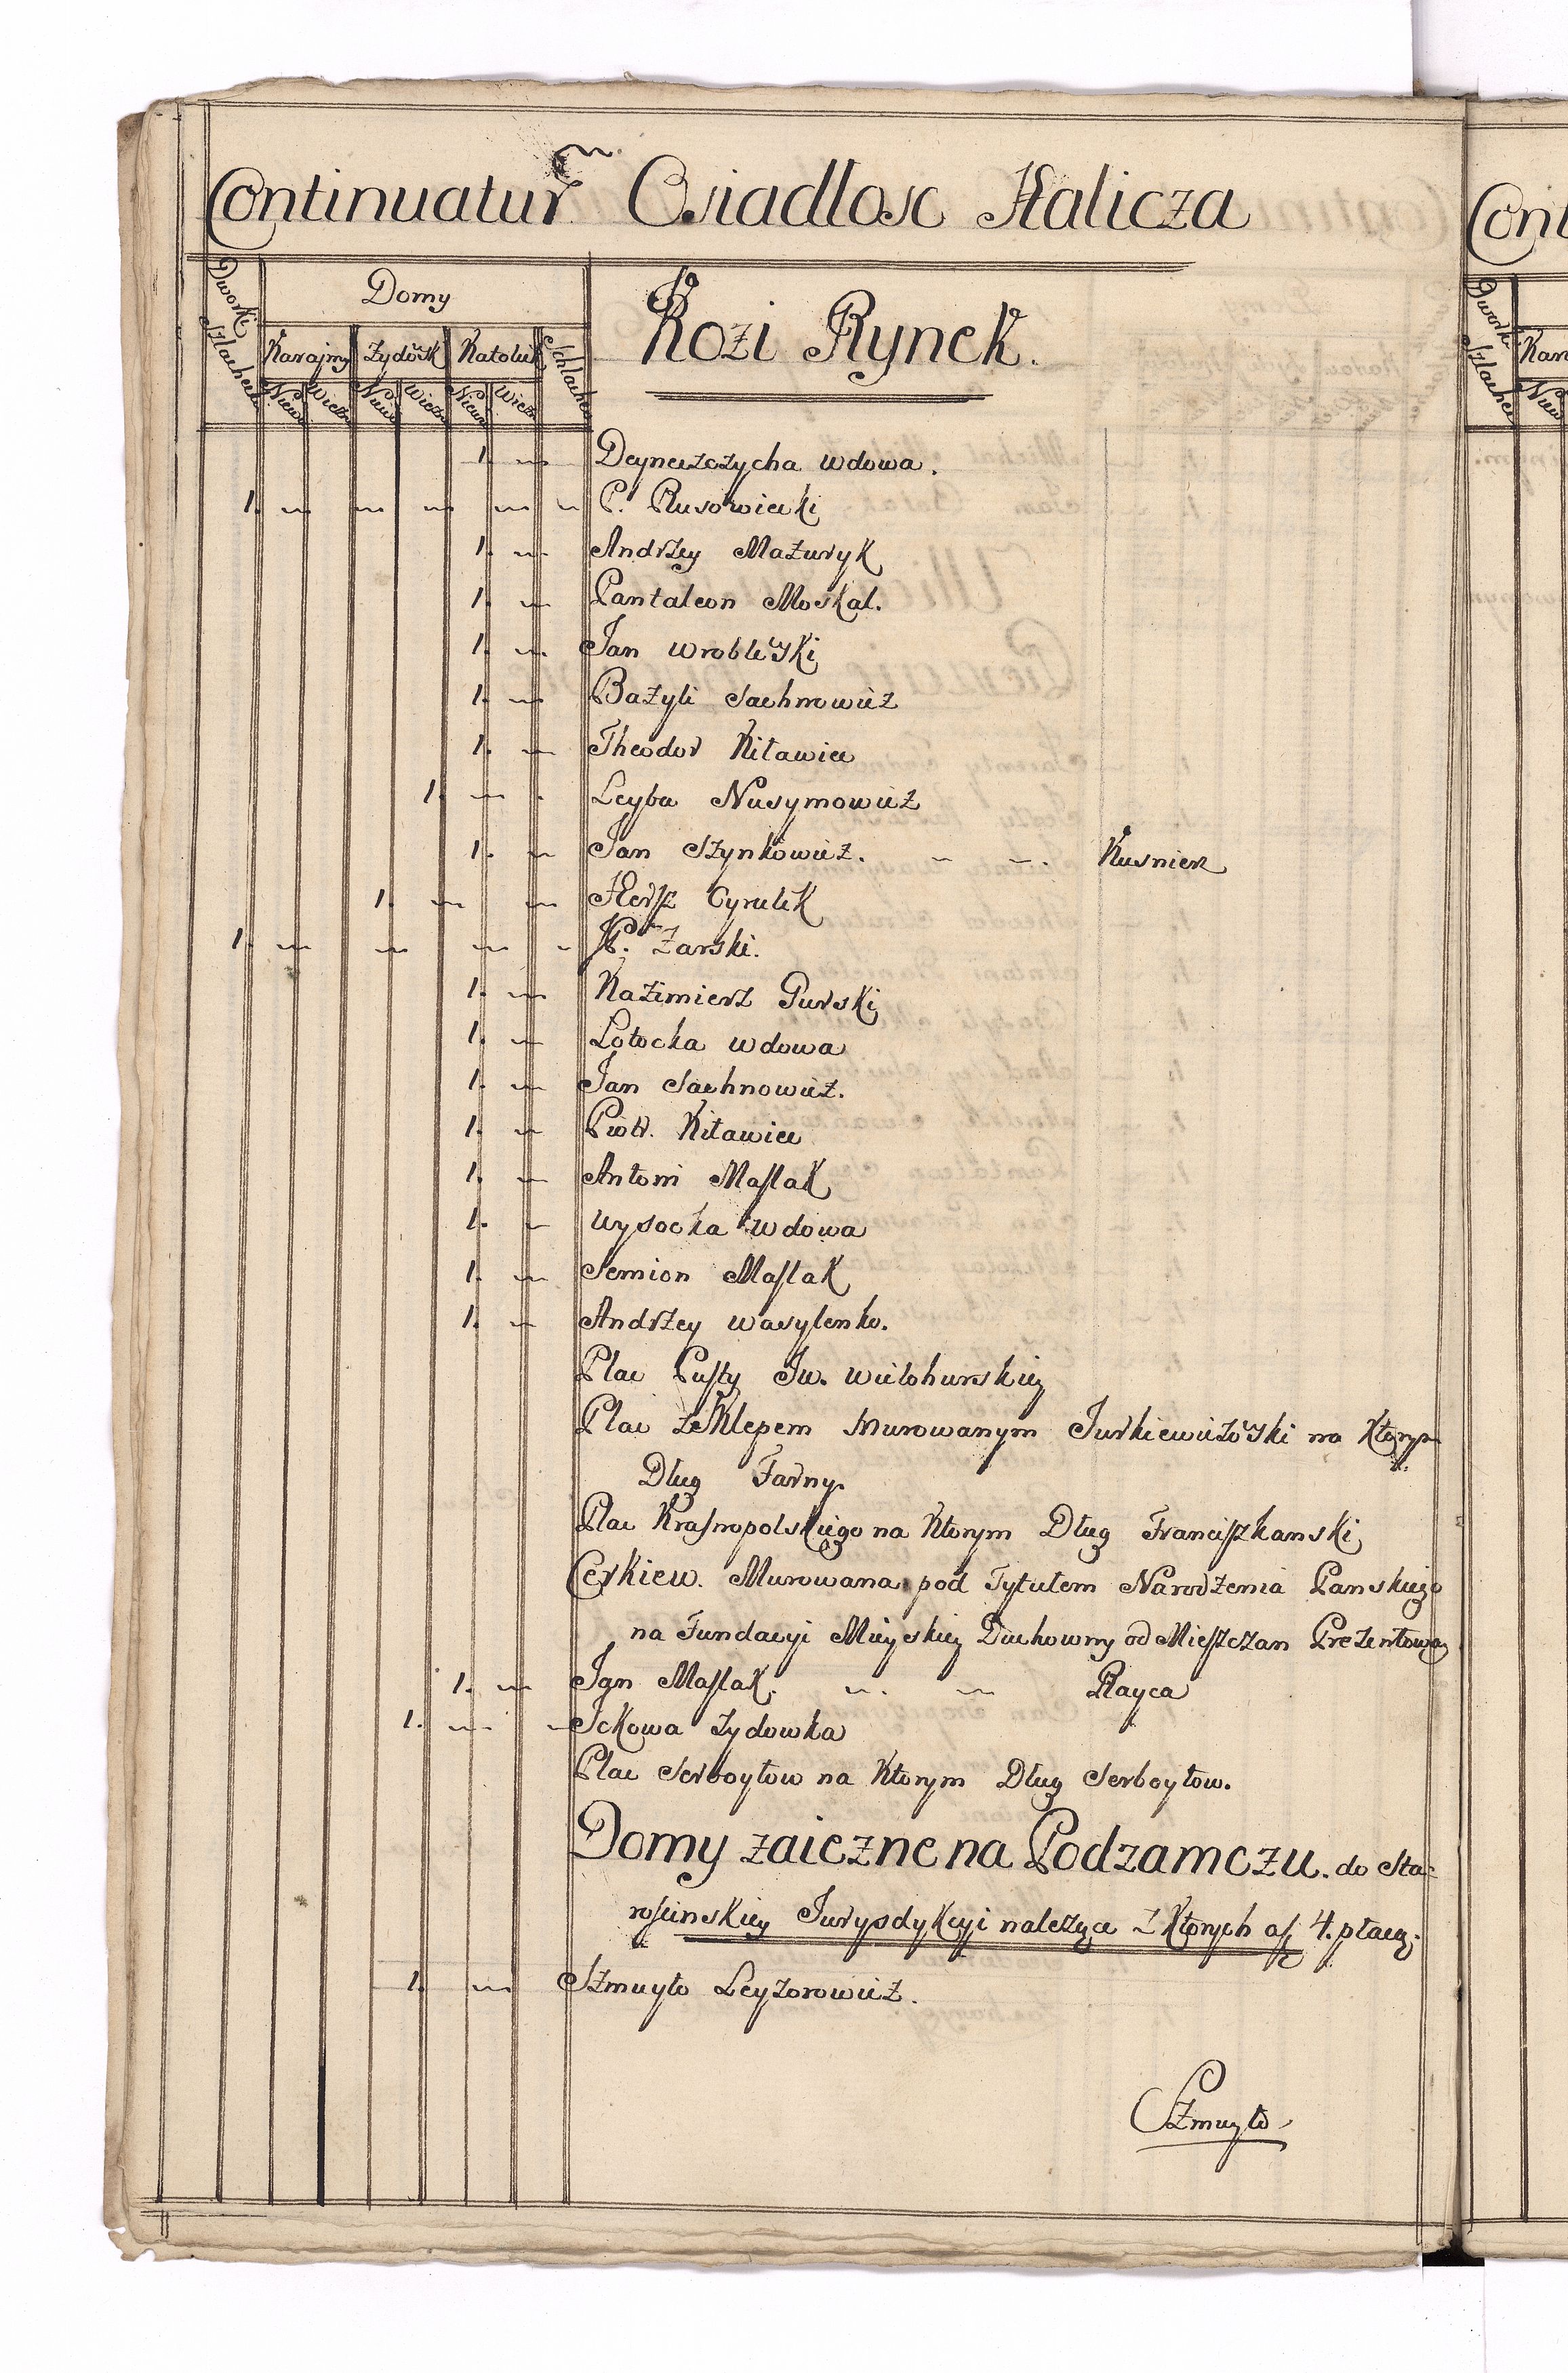 Continuatur Osiadlosc Halicza
Dworki Szlachec
Domy
Karajmy Zydosk Katolick Schlachec
Niew Wiezd Niew Wiezd Niew Wiezd
Kozi Rynek.
1. Deyneszczycha wdowa.
1. P. Rusowiecki
1. Andrzey Mazuryk
1. Pantaleon Moskal.
1. Jan Wroblewski
1. Bazyli Sachnowicz
1. Theodor Kitawiec
1. Leyba Nusymowicz
1. Jan Szynkowicz. Kusnierz
1. Hersz Cyrulik
1. Zarski.
1. Kazimierz Gurski
1. Lotocka wdowa
1. Jan Sachnowicz.
1. Piotr. Kitawiec
1. Antoni Maslak
1. Wysocka wdowa
1. Semion Maslak
1. Andrzey Wasylenko.
Plac Pusty Jw. Wielohurskiey
Plac ze Sklepem Murowanym Jurkiewiczowski na Ktorym
Dlug Farny.
Plac Krasnopolskiego na Ktorym Dlug Franciszkanski
Cerkiew. Murowana pod Tytulem Narodzenia Panskiego
na Fundacyi Mieyskiey Duchowny od Mieszczan Prezentowany
1. Jan Maslak. Rayca
1. Ickowa Zydowka
Plac Serboytow na Ktorym Dlug Serboytow.
Domy zaiezne na Podzamczu. do Sta-
roscinskiey Jurysdykcyi nalezące z Ktorych 4. płacą.
1. Szmuyło Leyzorowicz.
Szmuyło